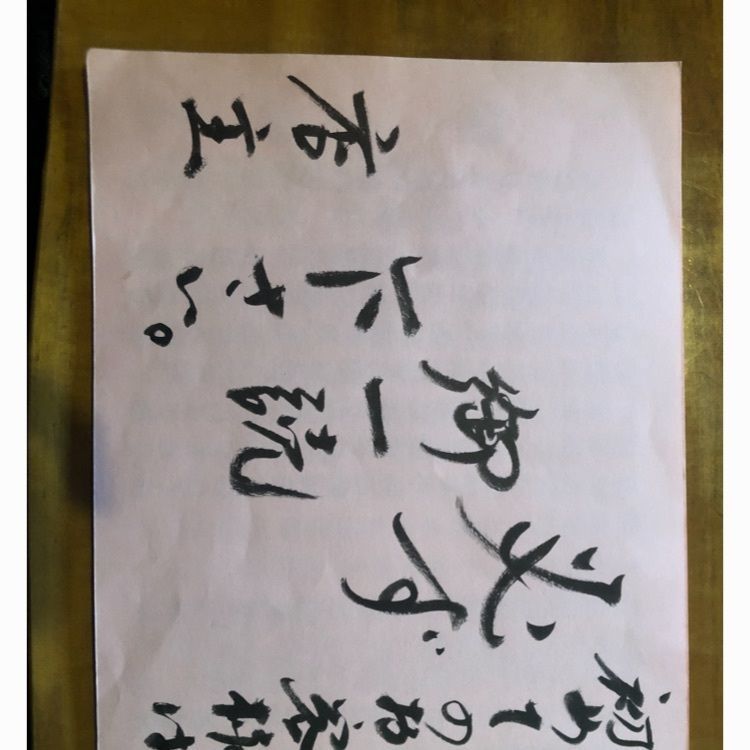 初めてのお客様は
必ず
御一読
下さい。
店主